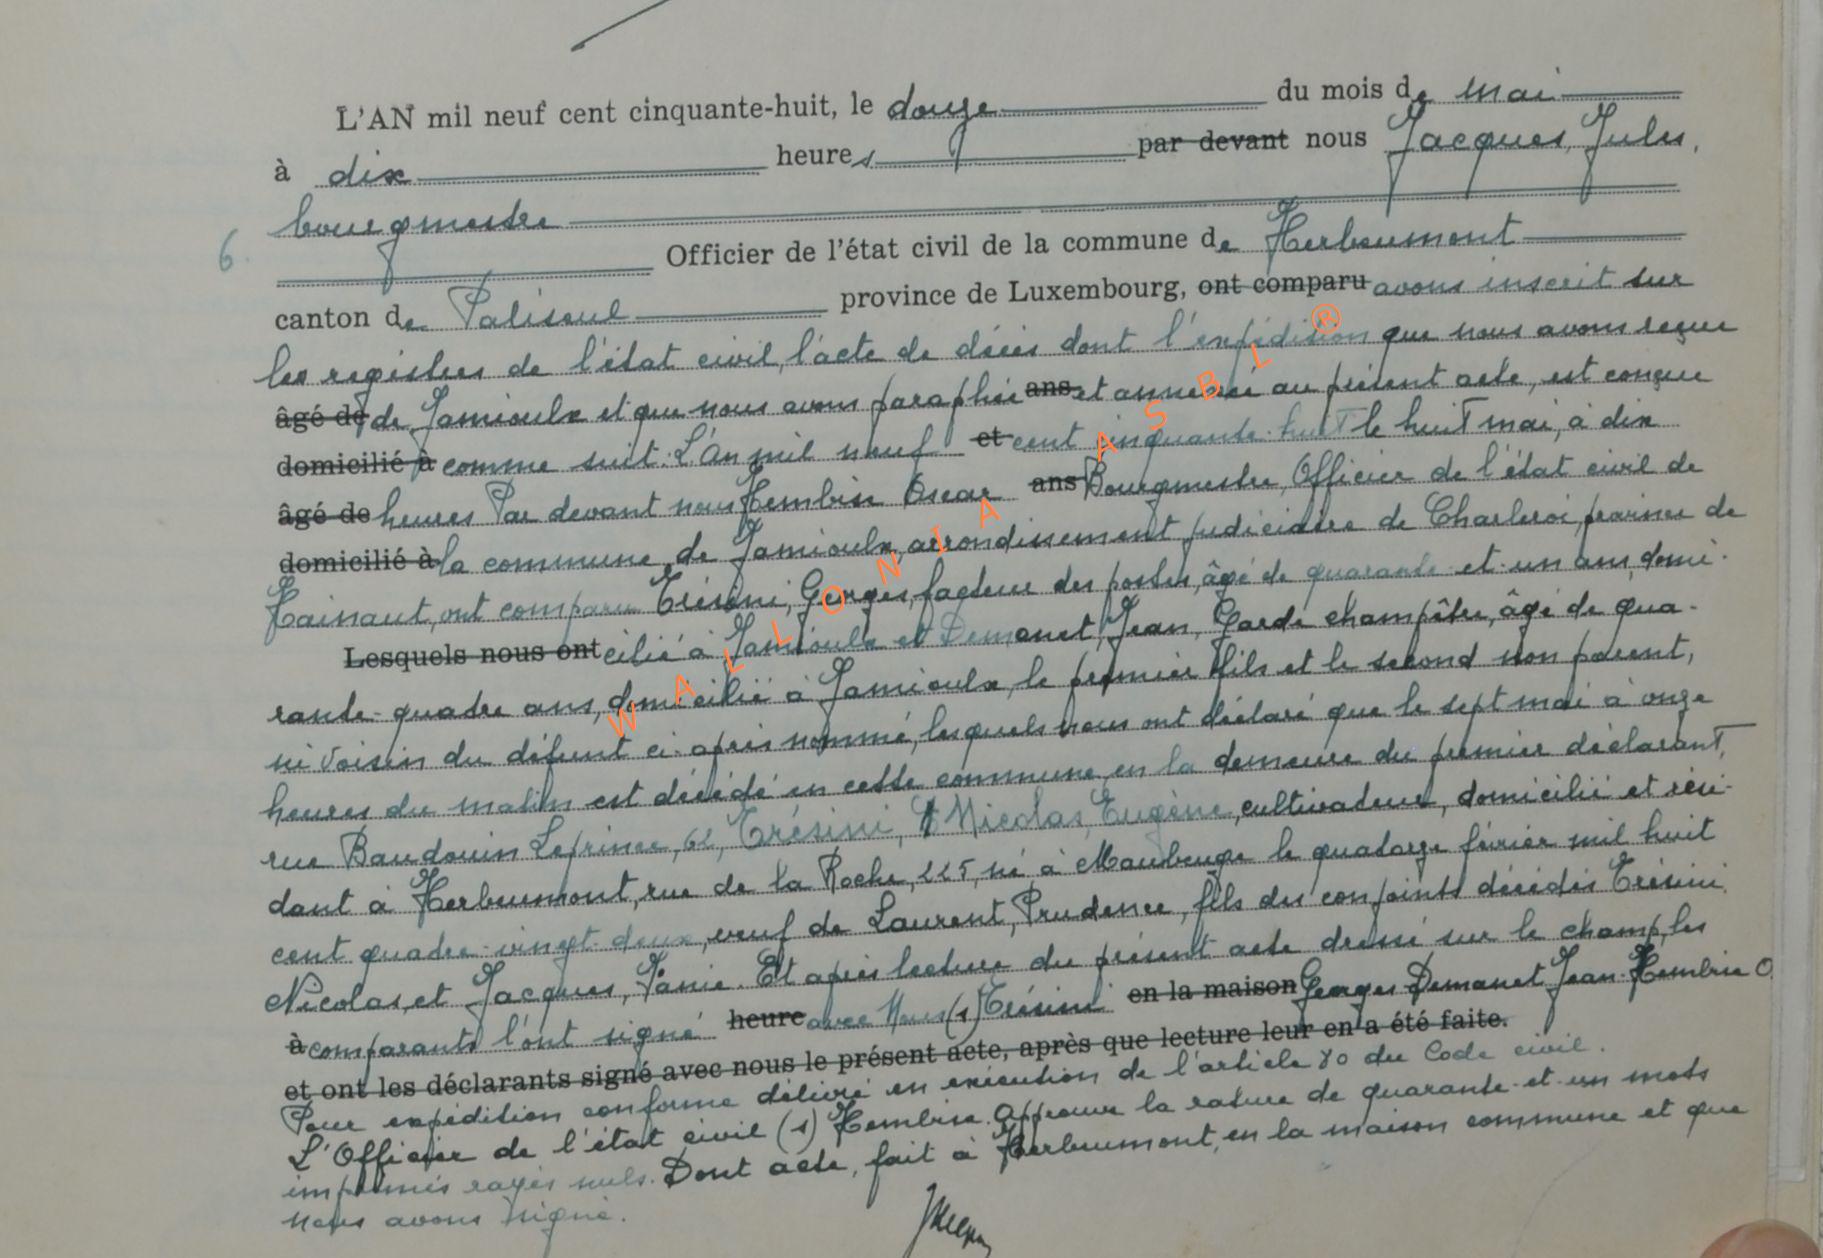 L'AN mil neuf cent cinquante-huit, le douze du mois de mai
à dix heures par devant nous Jacques, Jules,
bourgmestre
6. Officier de l'état civil de la commune de Herbeumont
canton de Paliseul province de Luxembourg, ont comparu avons inscrit sur
les registres de l'état civil, l'acte de décès dont l'expédition que nous avons reçue
âgé de de Jamioulx et que nous avons paraphée ans et annexée au présent acte, est conçue
domicilié à comme suit. L'An mil neuf et cent cinquante-huit le huit mai, à dix
âgé de heures Par devant nous Hembise Oscar ans Bourgmestre, Officier de l'état civil de
domicilié à la commune de Jamioulx, arrondissement judiciaire de Charleroi, province de
Hainaut, ont comparu Trésini, Georges, facteur des postes, âgé de quarante-et-un ans, domi-
Lesquels nous ont cilié à Jamioulx et Demanet, Jean, Garde champêtre, âgé de qua-
rante-quatre ans, domicilié à Jamioulx, le premier fils et le second non parent,
ni voisin du défunt ci-après nommé, lesquels nous ont déclaré que le sept mai à onze
heures du matin est décédé en cette commune, en la demeure du premier déclarant,
rue Baudouin Leprince, 62, Trésini, Nicolas, Eugène, cultivateur, domicilié et rési-
dant à Herbeumont, rue de la Roche, 225, né à Maubeuge le quatorze février mil huit
cent quatre-vingt-deux, veuf de Laurent, Prudence, fils des conjoints décédés Trésini,
Nicolas, et Jacques, Et après lecture du présent acte dressé sur le champ, les
à comparants l'ont signé heure avec Nous (s) Trésini en la maison Georges Demanet Jean Hembise O.
et ont les déclarants signé avec nous le présent acte, après que lecture leur en a été faite.
Pour expédition conforme délivré en exécution de l'article 80 du Code civil.
L'Officier de l'état civil (s) Hembise. Approuvé la rature de quarante-et-un mots
imprimés rayés nuls. Dont acte, fait à Herbeumont, en la maison commune et que
nous avons signé.
WALLONIA ASBL ®